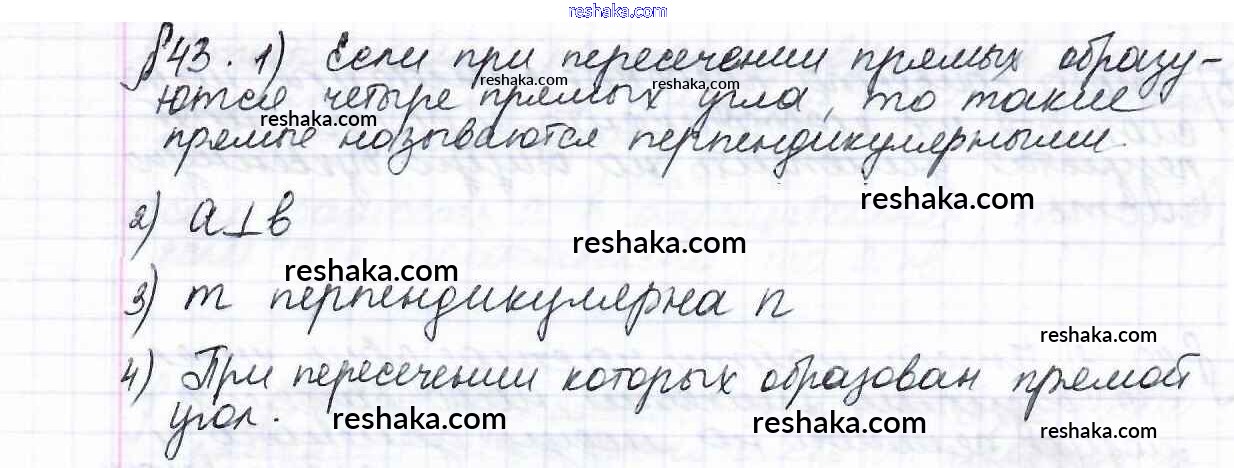 reshaka.com
§43. 1) Если при пересечении прямых образу-
reshaka.com reshaka.com
ются четыре прямых угла, то такие
reshaka.com
прямые называются перпендикулярными.
reshaka.com
2) a⊥b
reshaka.com
reshaka.com
3) m перпендикулярна n
reshaka.com
4) При пересечении которых образован прямой
угол.
reshaka.com reshaka.com reshaka.com